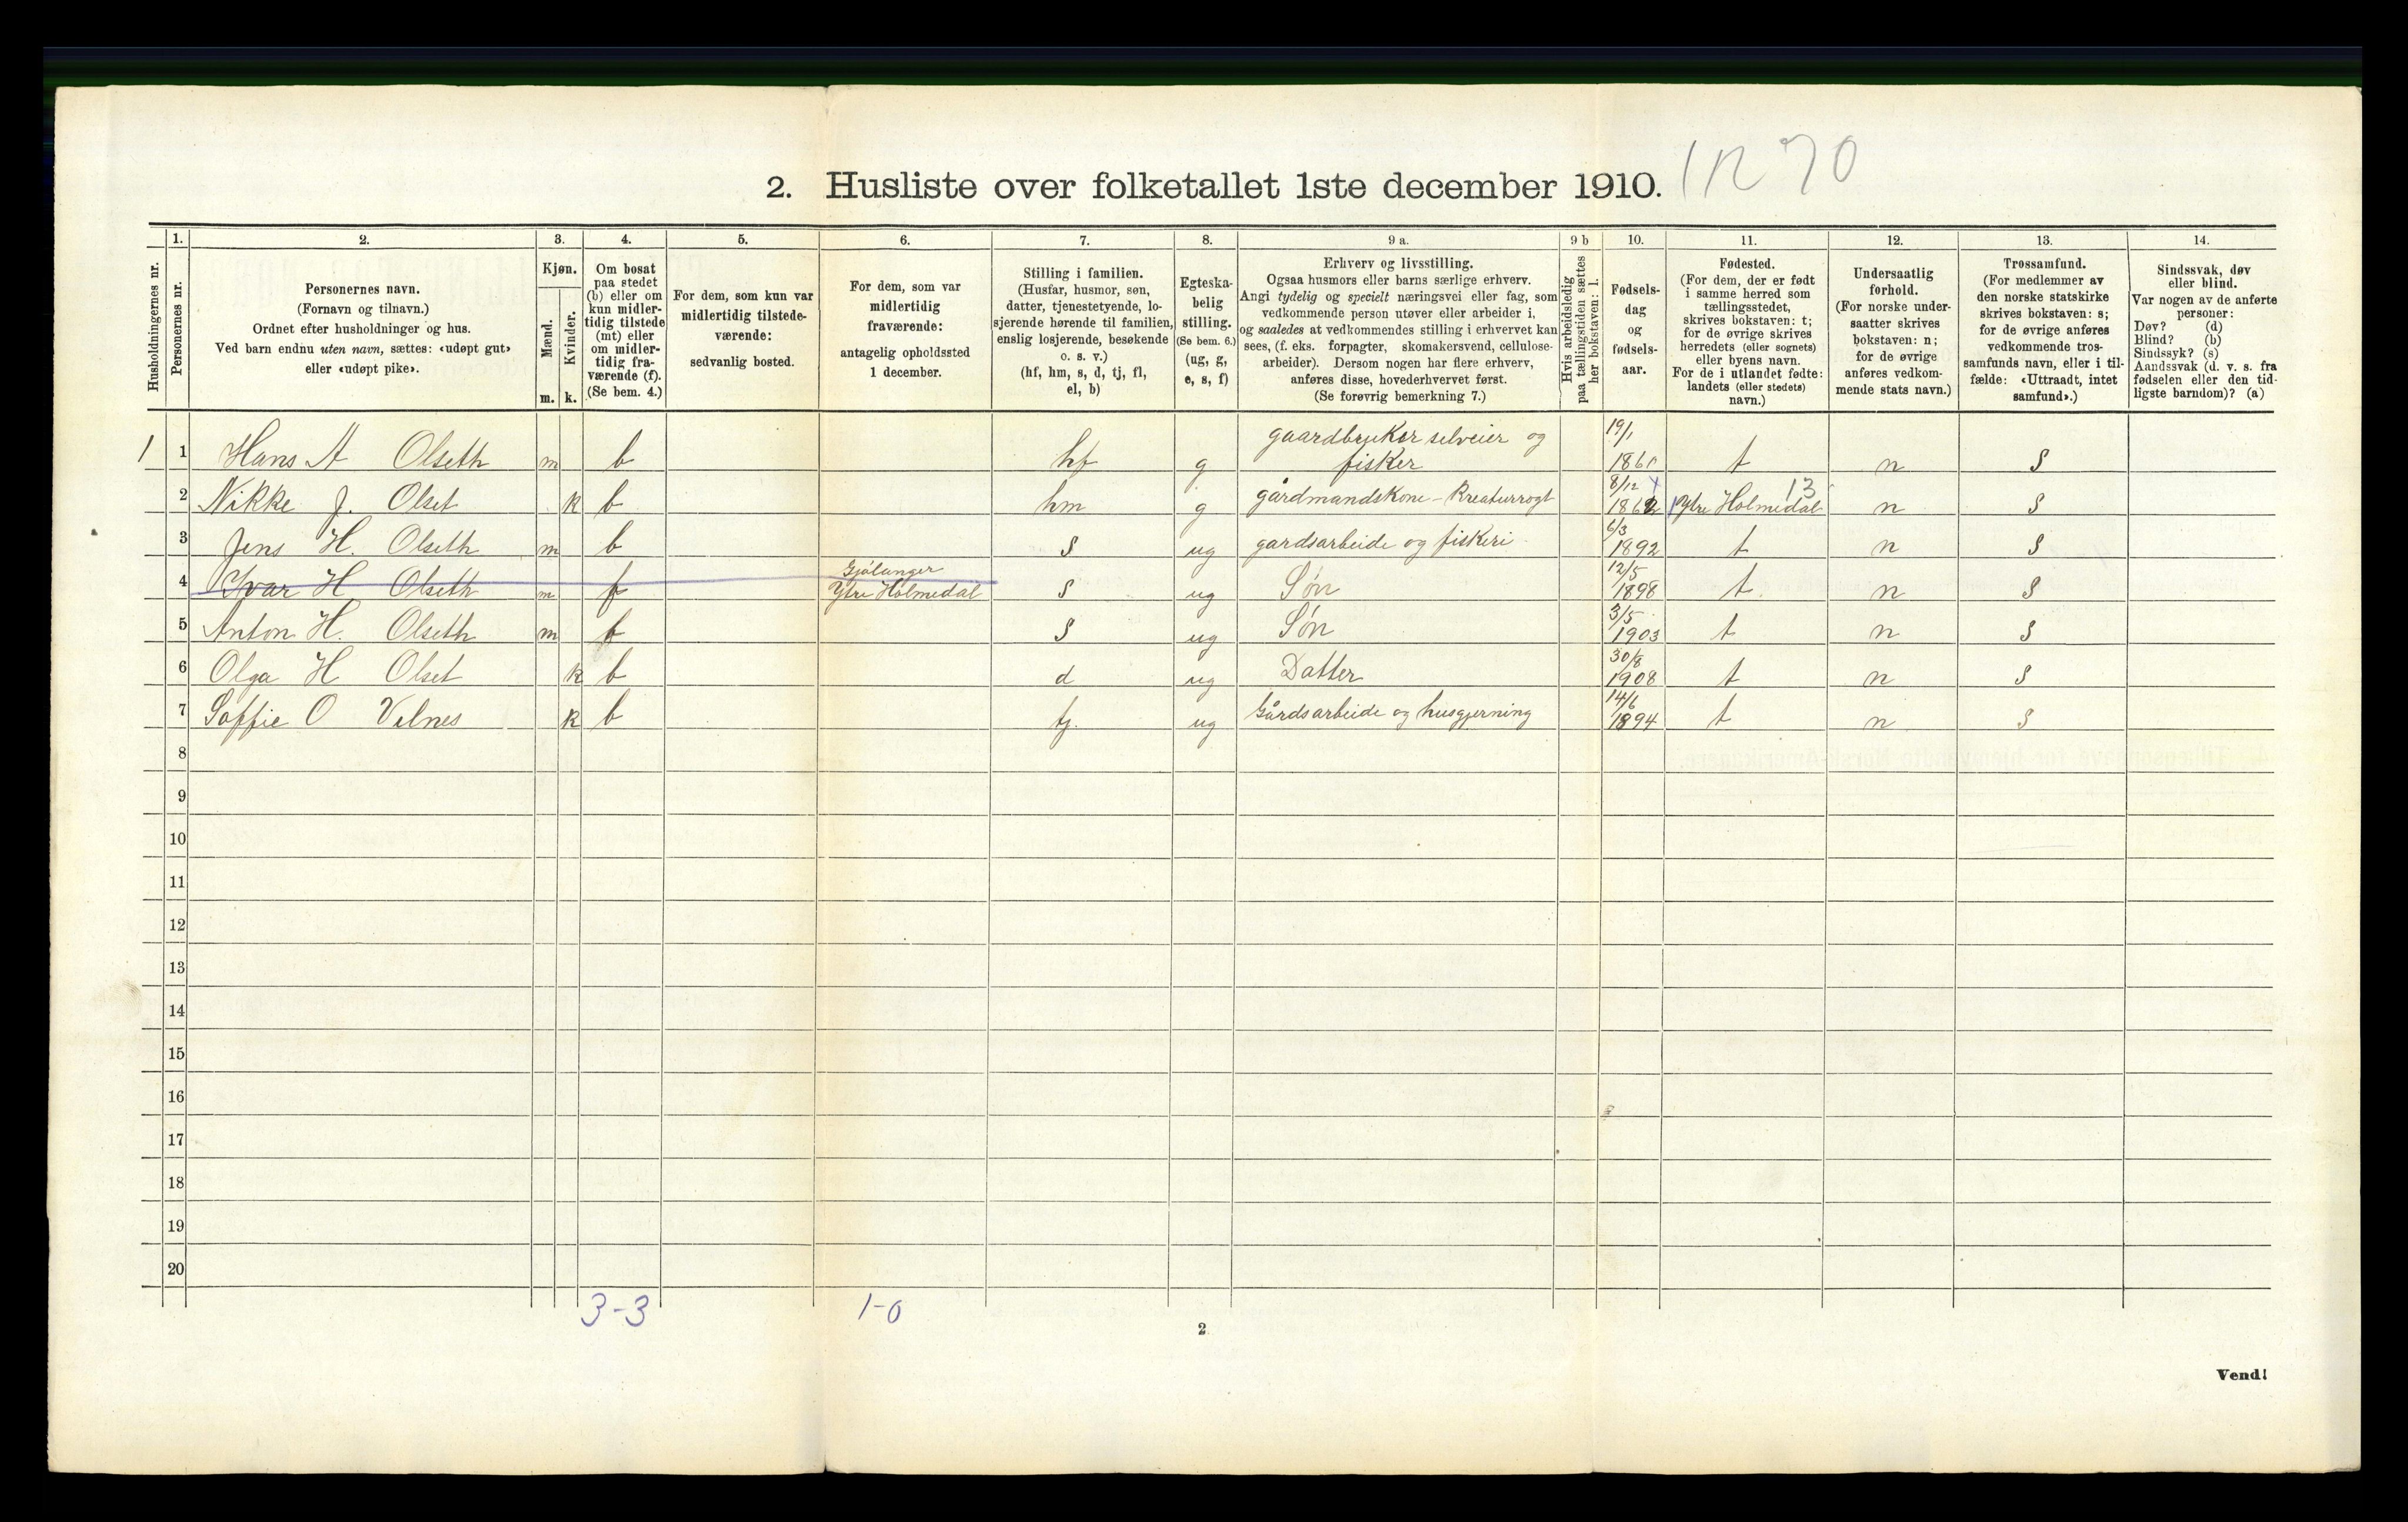 2. Husliste over folketallet 1ste december 1910. 1270
Husholdningernes nr.
1. 2. 3. 4. 5. 6. 7. 8. 9 a. 9 b 10. 11. 12. 13. 14.
Personernes nr.
Personernes navn.
(Fornavn og tilnavn.)
Ordnet efter husholdninger og hus.
Ved barn endnu uten navn, sættes: «udøpt gut»
eller «udøpt pike».
Kjøn.
Mænd.
Kvinder.
m. k.
Om bosat
paa stedet
(b) eller om
kun midler-
tidig tilstede
(mt) eller
om midler-
tidig fra-
værende (f).
(Se bem. 4.)
For dem, som kun var
midlertidig tilstede-
værende:
sedvanlig bosted.
For dem, som var
midlertidig
fraværende:
antagelig opholdssted
1 december.
Stilling i familien.
(Husfar, husmor, søn,
datter, tjenestetyende, lo-
sjerende hørende til familien,
enslig losjerende, besøkende
o. s. v.)
(hf, hm, s, d, tj, fl,
el, b)
Egteska-
belig
stilling.
(Se bem. 6.)
(ug, g,
e, s, f)
Erhverv og livsstilling.
Ogsaa husmors eller barns særlige erhverv.
Angi tydelig og specielt næringsvei eller fag, som
vedkommende person utøver eller arbeider i,
og saaledes at vedkommendes stilling i erhvervet kan
sees, (f. eks. forpagter, skomakersvend, cellulose-
arbeider). Dersom nogen har flere erhverv,
anføres disse, hovederhvervet først.
(Se forøvrig bemerkning 7.)
Hvis arbeidsledig
paa tællingstiden sættes
her bokstaven: l.
Fødsels-
dag
og
fødsels-
aar.
Fødested.
(For dem, der er født
i samme herred som
tællingsstedet,
skrives bokstaven: t;
for de øvrige skrives
herredets (eller sognets)
eller byens navn.
For de i utlandet fødte:
landets (eller stedets)
navn.)
Undersaatlig
forhold.
(For norske under-
saatter skrives
bokstaven: n;
for de øvrige
anføres vedkom-
mende stats navn.)
Trossamfund.
(For medlemmer av
den norske statskirke
skrives bokstaven: s;
for de øvrige anføres
vedkommende tros-
samfunds navn, eller i til-
fælde: «Uttraadt, intet
samfund».)
Sindssvak, døv
eller blind.
Var nogen av de anførte
personer:
Døv? (d)
Blind? (b)
Sindssyk? (s)
Aandssvak (d. v. s. fra
fødselen eller den tid-
ligste barndom)? (a)
1 1 Hans A Olseth m b hf g gaardbruker selveier og fisker 19/1 1861 t n s
2 Nikke J. Olset k b hm g gårdmandskone - Kreaturrøgt 8/12 1862 Ytre Holmedal 13 n s
3 Jens H. Olseth m b s ug gardsarbeide og fiskeri 6/3 1892 t n s
4 Ivar H Olseth m f Gjølanger Ytre Holmedal s ug Søn 12/5 1898 t n s
5 Anton H. Olseth m b s ug Søn 3/5 1903 t n s
6 Olga H Olset k b d ug Datter 30/8 1908 t n s
7 Soffie O Vilnes k b tj. ug Gårdsarbeide og husgjerning 14/6 1894 t n s
8
9
10
11
12
13
14
15
16
17
18
19
20
3-3 1-0
2
Vend!